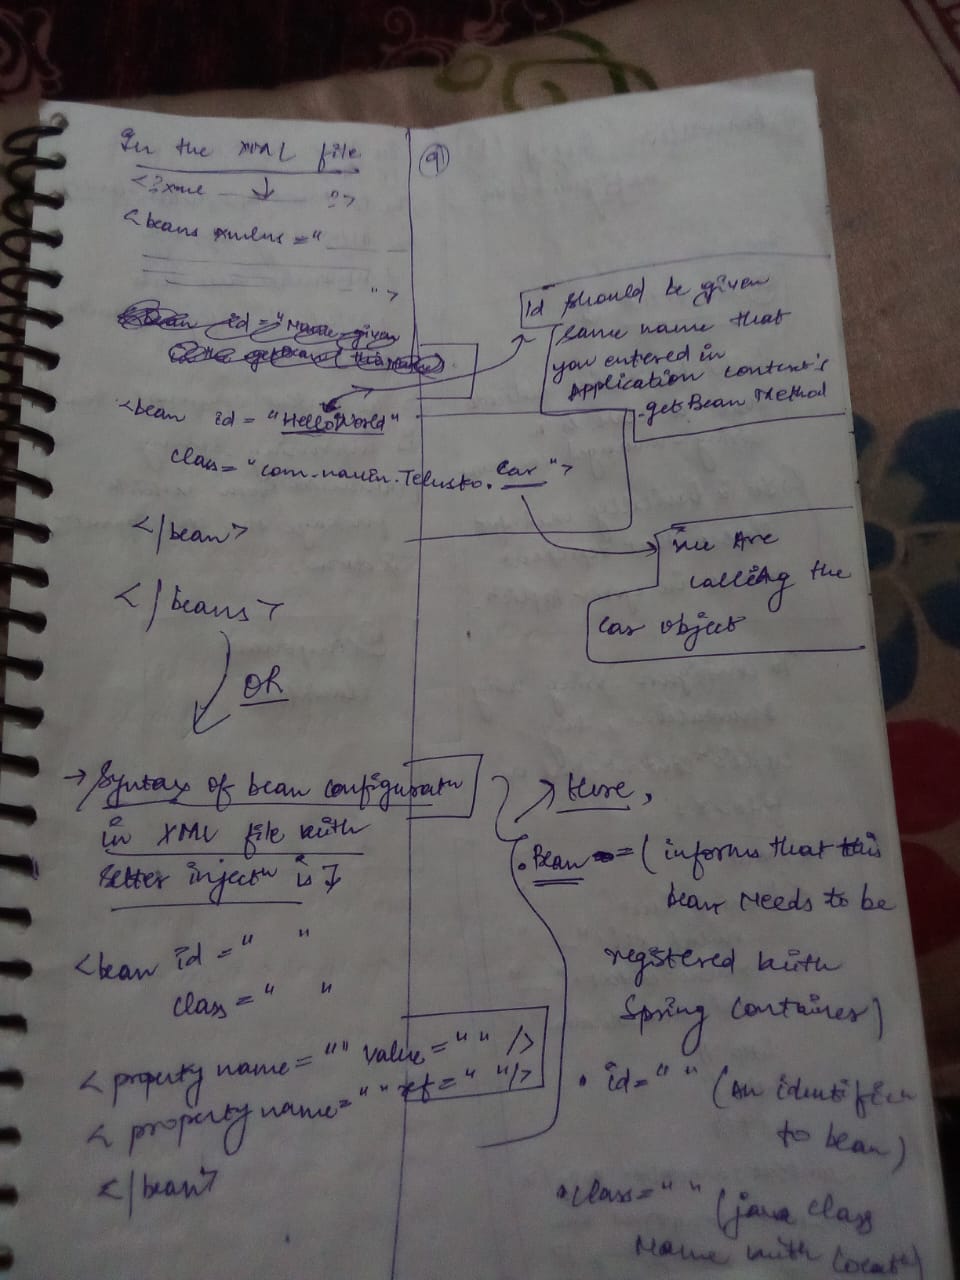 In the XML file
<?xml ?>
<beans xmlns="
">
<bean id="Name given
getBean(
<bean id="HelloWorld"
class="com.navin.Telusko.Car">
</bean>
</beans>
OR
→ Syntax of bean configuratn
in XML file with
setter injectn is ↓
<bean id=" "
class=" "
<property name="" value=" " />
<property name=" " ref=" "/>
</bean>
9
Id should be given
same name that
you entered in
Application context's
.getBean Method
we Are
calling the
Car object
→ Here,
• Bean = (informs that this
bean needs to be
registered with
Spring Container)
• id=" " (An identifier
to bean)
• class=" " (java class
Name with locatn)